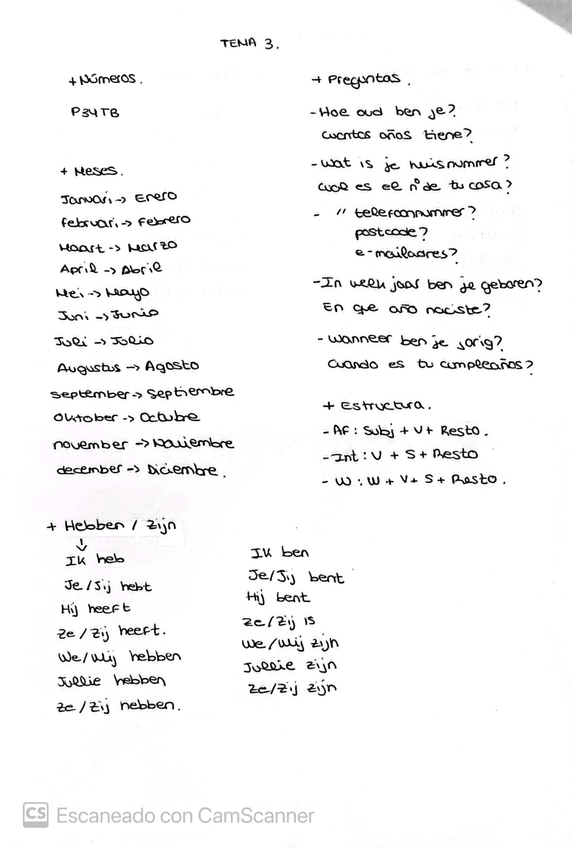 TEMA 3.
+ Números.
P34TB
+ Meses.
Januari -> Enero
februari -> Febrero
Maart -> Marzo
April -> Abril
Mei -> Mayo
Juni -> Junio
Juli -> Julio
Augustus -> Agosto
september -> Septiembre
Oktober -> Octubre
november -> Noviembre
december -> Diciembre.
+ Preguntas.
- Hoe oud ben je?
cuantos años tiene?
- Wat is je huisnummer?
Cual es el nº de tu casa?
- " telefoonnummer?
postcode?
e-mailadres?
- In welk jaar ben je geboren?
En que año naciste?
- Wanneer ben je jarig?
Cuando es tu cumpleaños?
+ Estructura.
- Af: Subj + V + Resto.
- Int: V + S + Resto
- W: W + V + S + Resto.
+ Hebben / Zijn
Ik heb
Je/Jij hebt
Hij heeft
Ze/Zij heeft.
We/Wij hebben
Jullie hebben
Ze/Zij hebben.
Ik ben
Je/Jij bent
Hij bent
Ze/Zij is
We/Wij zijn
Jullie zijn
Ze/Zij zijn
CS Escaneado con CamScanner